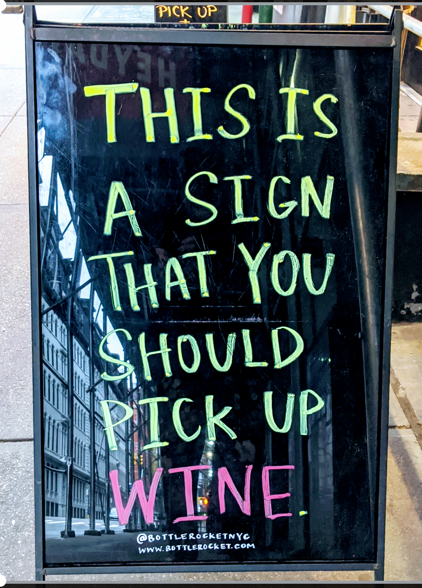 PICK UP
HEYDAY
THIS IS
A SIGN
THAT YOU
SHOULD
PICK UP
WINE.
@BOTTLEROCKETNYC
WWW.BOTTLEROCKET.COM